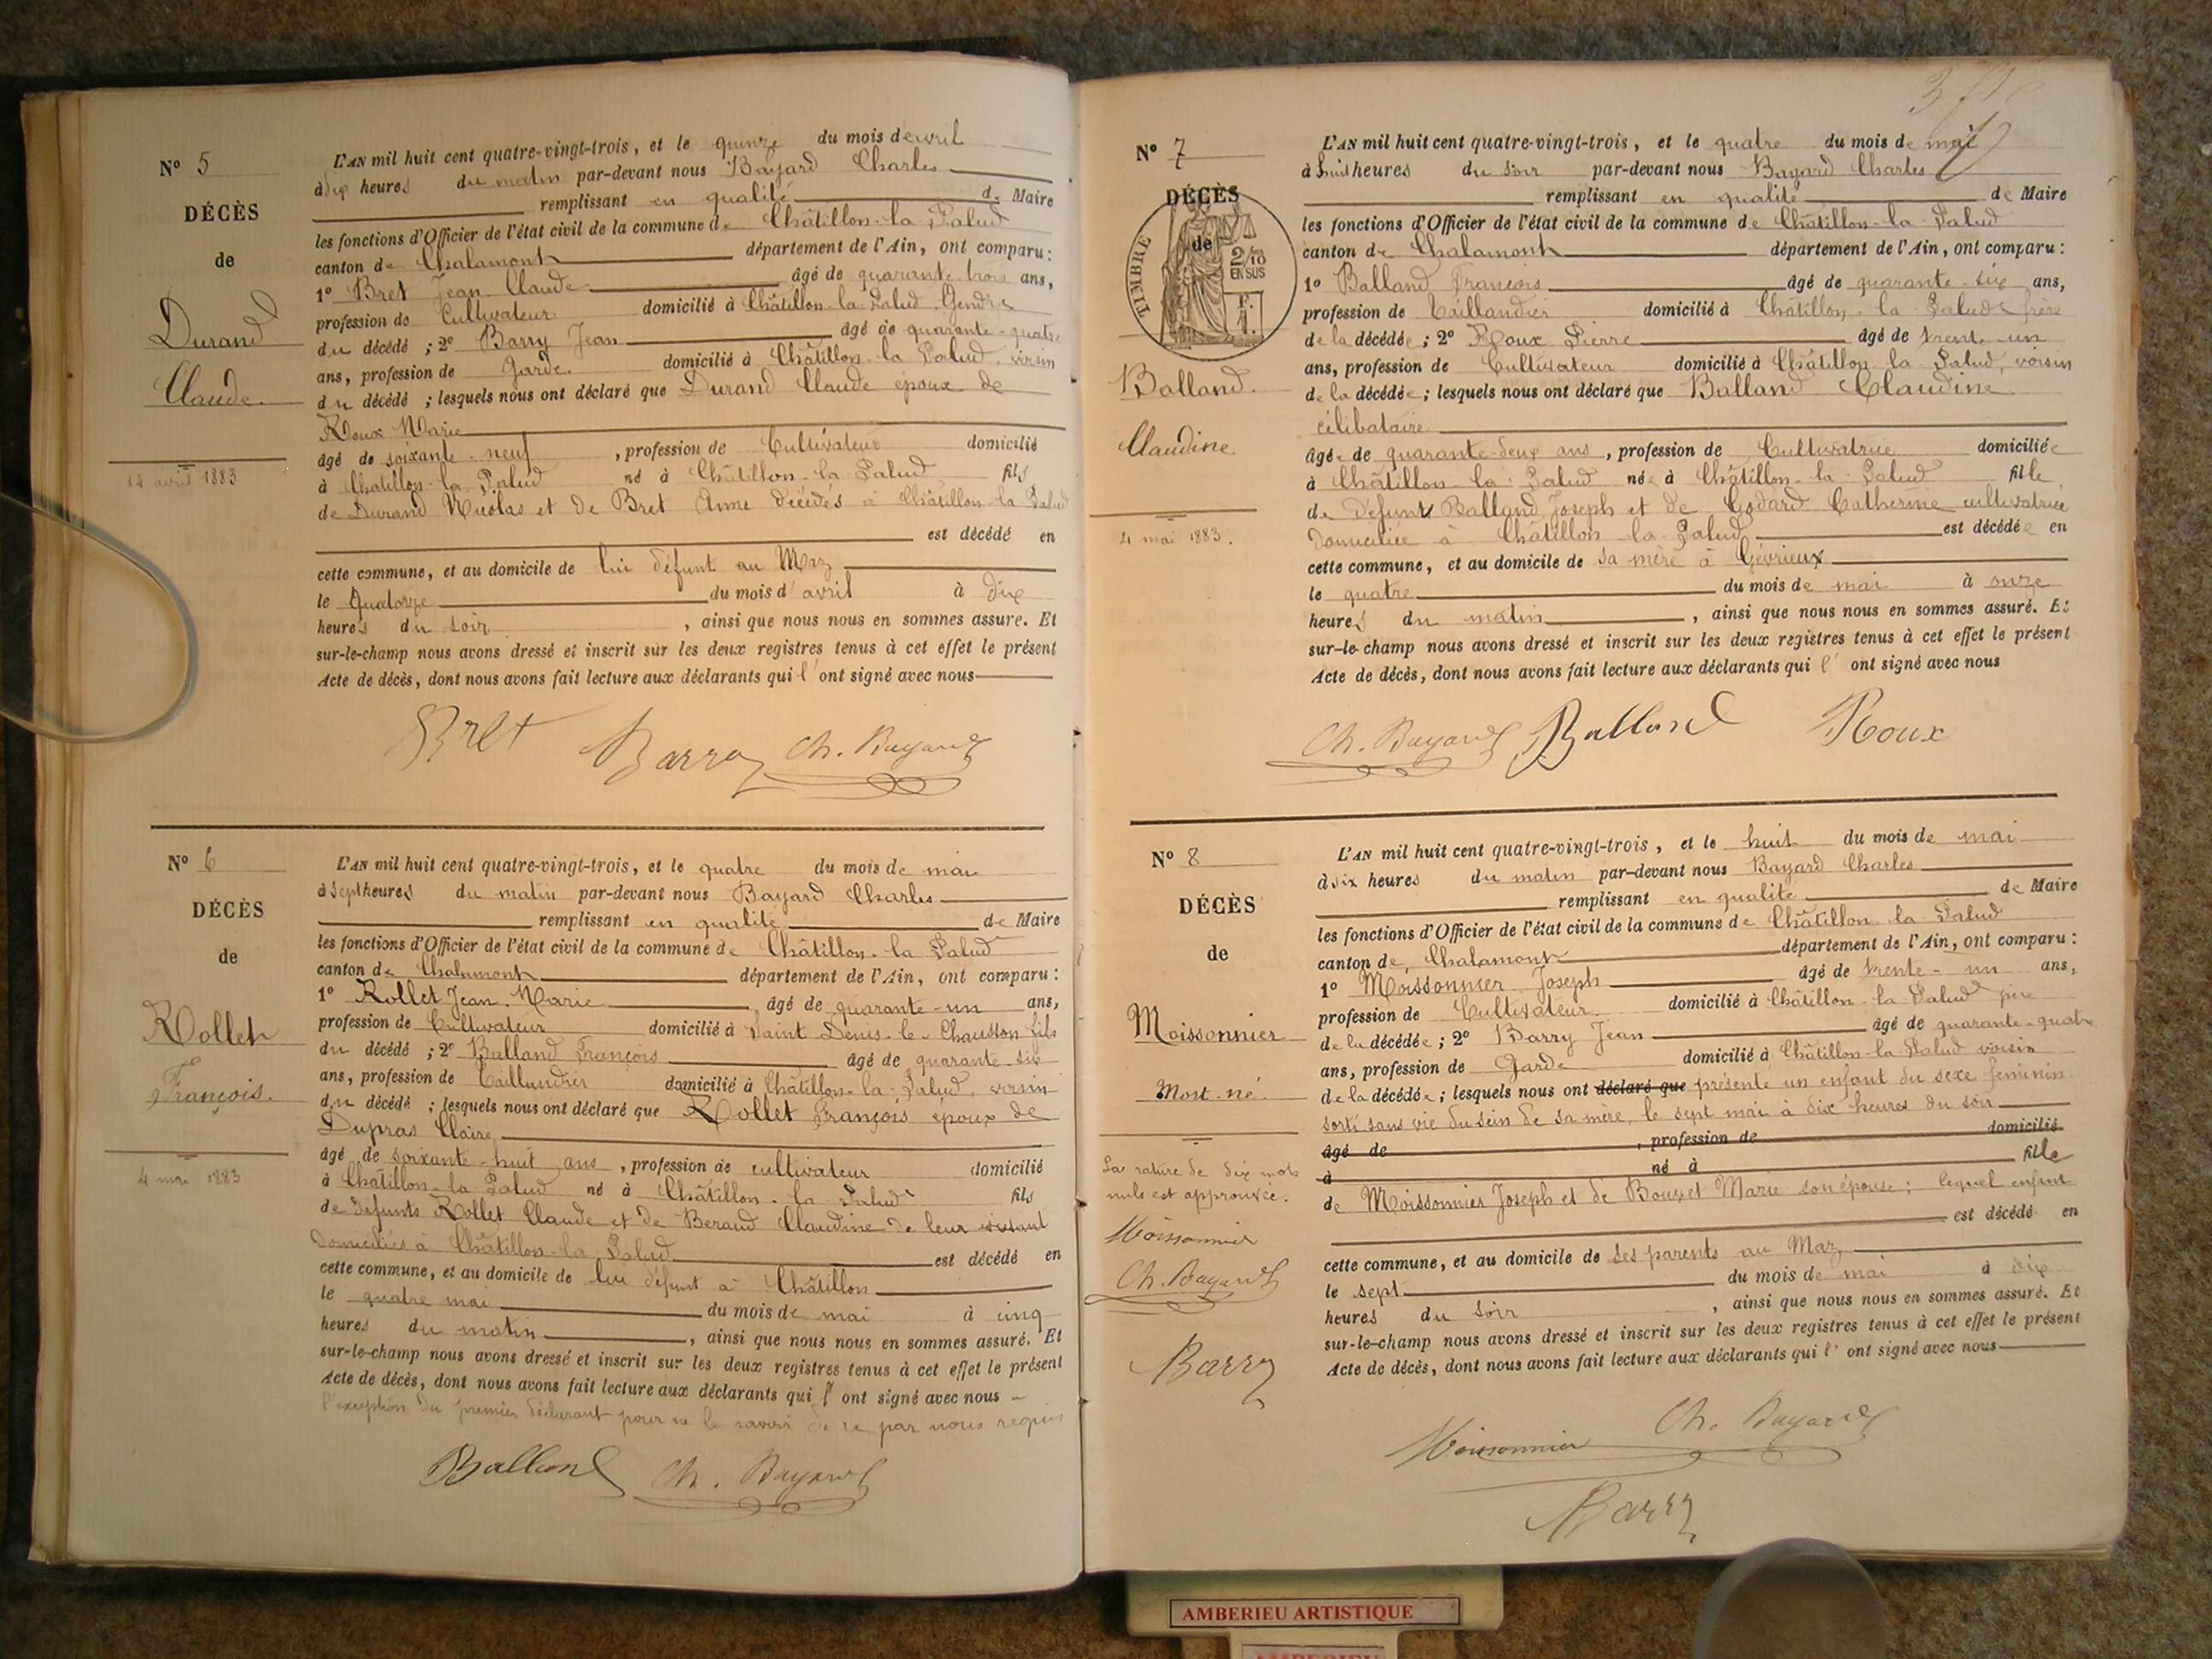 N° 5
DÉCÈS
de
Durand
Claude.
14 avril 1883
L'AN mil huit cent quatre-vingt-trois, et le quinze du mois d'avril
à dix heures du matin par-devant nous Bayard Charles
remplissant en qualité de Maire
les fonctions d'Officier de l'état civil de la commune de Châtillon-la-Palud
canton de Chalamont département de l'Ain, ont comparu :
1° Bret Jean Claude âgé de quarante trois ans,
profession de Cultivateur domicilié à Châtillon-la-Palud, Gendre
du décédé ; 2° Barry Jean âgé de quarante-quatre
ans, profession de Garde domicilié à Châtillon-la-Palud, voisin
du décédé ; lesquels nous ont déclaré que Durand Claude époux de
Roux Marie
âgé de soixante-neuf , profession de Cultivateur domicilié
à Châtillon-la-Palud né à Châtillon-la-Palud fils
de Durand Nicolas et de Bret Anne décédés à Châtillon-la-Palud
est décédé en
cette commune, et au domicile de lui défunt au Maz
le Quatorze du mois d'avril à dix
heures du soir , ainsi que nous nous en sommes assuré. Et
sur-le-champ nous avons dressé et inscrit sur les deux registres tenus à cet effet le présent
Acte de décès, dont nous avons fait lecture aux déclarants qui l'ont signé avec nous
Bret Barry Ch. Bayard
N° 6
DÉCÈS
de
Rollet
François.
4 mai 1883
L'AN mil huit cent quatre-vingt-trois, et le quatre du mois de mai
à sept heures du matin par-devant nous Bayard Charles
remplissant en qualité de Maire
les fonctions d'Officier de l'état civil de la commune de Châtillon-la-Palud
canton de Chalamont département de l'Ain, ont comparu :
1° Rollet Jean Marie âgé de quarante-un ans,
profession de Cultivateur domicilié à Saint Denis-le-Chausson fils
du décédé ; 2° Balland François âgé de quarante six
ans, profession de Taillandier domicilié à Châtillon-la-Palud, voisin
du décédé ; lesquels nous ont déclaré que Rollet François époux de
Dupras Claire
âgé de soixante-huit ans , profession de cultivateur domicilié
à Châtillon-la-Palud né à Châtillon-la-Palud fils
de défunts Rollet Claude et de Beraud Claudine de leur vivant
domiciliés à Châtillon-la-Palud est décédé en
cette commune, et au domicile de lui défunt à Châtillon
le quatre mai du mois de mai à cinq
heures du matin , ainsi que nous nous en sommes assuré. Et
sur-le-champ nous avons dressé et inscrit sur les deux registres tenus à cet effet le présent
Acte de décès, dont nous avons fait lecture aux déclarants qui l'ont signé avec nous
l'exception du premier déclarant pour ne le savoir de ce par nous requis
Balland Ch. Bayard
N° 7
DÉCÈS
de
TIMBRE
2/10
EN SUS
Balland.
Claudine
4 mai 1883.
L'AN mil huit cent quatre-vingt-trois, et le quatre du mois de mai
à huit heures du soir par-devant nous Bayard Charles
remplissant en qualité de Maire
les fonctions d'Officier de l'état civil de la commune de Châtillon-la-Palud
canton de Chalamont département de l'Ain, ont comparu :
1° Balland François âgé de quarante-six ans,
profession de Taillandier domicilié à Châtillon-la-Palud frère
de la décédée ; 2° Roux Pierre âgé de trente-un
ans, profession de Cultivateur domicilié à Châtillon-la-Palud, voisin
de la décédée ; lesquels nous ont déclaré que Balland Claudine
célibataire
âgée de quarante-deux ans , profession de Cultivatrice domiciliée
à Châtillon-la-Palud née à Châtillon-la-Palud fille
de défunt Balland Joseph et de Godard Catherine cultivatrice
domiciliée à Châtillon-la-Palud est décédée en
cette commune, et au domicile de sa mère à Gévrieux
le quatre du mois de mai à onze
heures du matin , ainsi que nous nous en sommes assuré. Et
sur-le-champ nous avons dressé et inscrit sur les deux registres tenus à cet effet le présent
Acte de décès, dont nous avons fait lecture aux déclarants qui l'ont signé avec nous
Ch. Bayard Balland Roux
N° 8
DÉCÈS
de
Moissonnier
Mort-né.
La rature de dix mots
nuls est approuvée.
Moissonnier
Ch. Bayard
Barry
L'AN mil huit cent quatre-vingt-trois, et le huit du mois de mai
à six heures du matin par-devant nous Bayard Charles
remplissant en qualité de Maire
les fonctions d'Officier de l'état civil de la commune de Châtillon-la-Palud
canton de Chalamont département de l'Ain, ont comparu :
1° Moissonnier Joseph âgé de trente-un ans,
profession de Cultivateur domicilié à Châtillon-la-Palud père
de la décédée ; 2° Barry Jean âgé de quarante-quatre
ans, profession de Garde domicilié à Châtillon-la-Palud voisin
de la décédée ; lesquels nous ont déclaré que présenté un enfant du sexe féminin
sorti sans vie du sein de sa mère, le sept mai à dix heures du soir
âgé de , profession de domicilié
à né à fille
de Moissonnier Joseph et de Bouvet Marie son épouse ; lequel enfant
est décédé en
cette commune, et au domicile de ses parents au Maz
le sept du mois de mai à dix
heures du soir , ainsi que nous nous en sommes assuré. Et
sur-le-champ nous avons dressé et inscrit sur les deux registres tenus à cet effet le présent
Acte de décès, dont nous avons fait lecture aux déclarants qui l'ont signé avec nous
Moissonnier Ch. Bayard
Barry
AMBERIEU ARTISTIQUE
AMBERIEU